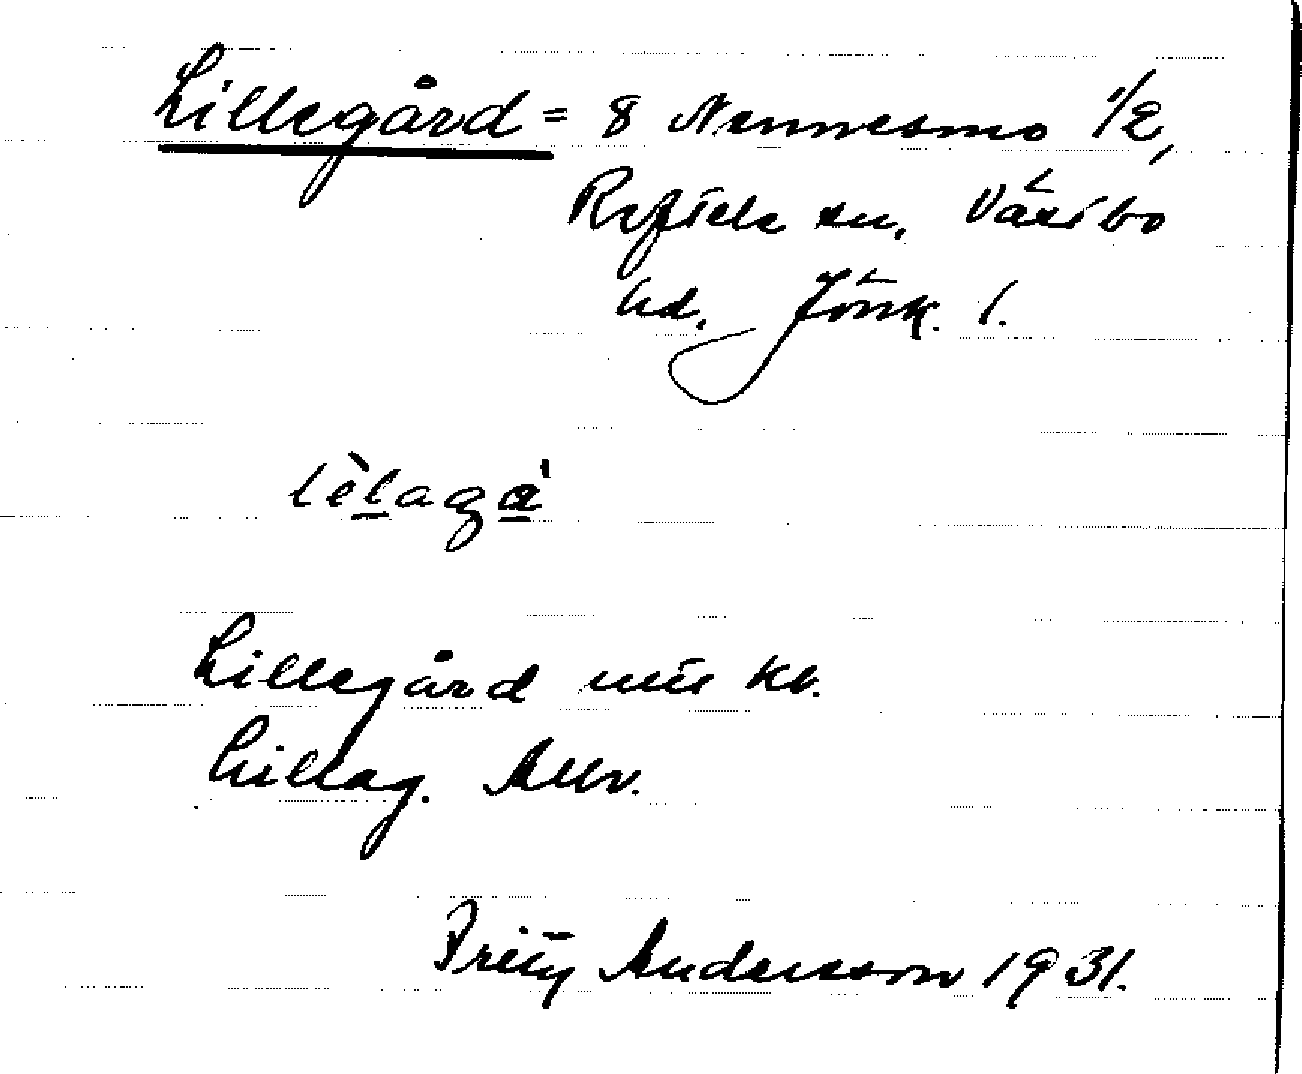 Lillegård = 8 Nennesmo 1/2,
Reftele sn, Västbo
hd, Jönk. l.
lèlagá
Lillegård
Lillag.
Fritz Andersson 1931.